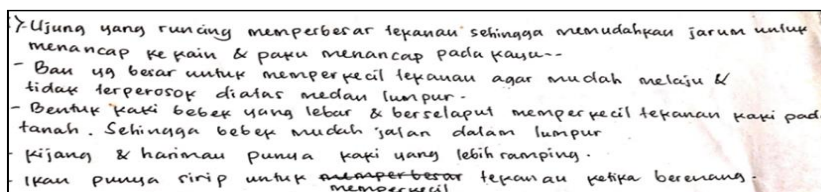 :)- Ujung yang runcing memperbesar tekanan sehingga memudahkan jarum untuk
menancap ke kain & paku menancap pada kayu--
- Ban yg besar untuk memperkecil tekanan agar mudah melaju &
tidak terperosok diatas medan lumpur.
- Bentuk kaki bebek yang lebar & berselaput memperkecil tekanan kaki pad
tanah. Sehingga bebek mudah jalan dalam lumpur
- Kijang & harimau punya kaki yang lebih ramping.
- Ikan punya sirip untuk memperbesar tekanan ketika berenang.
memperkecil